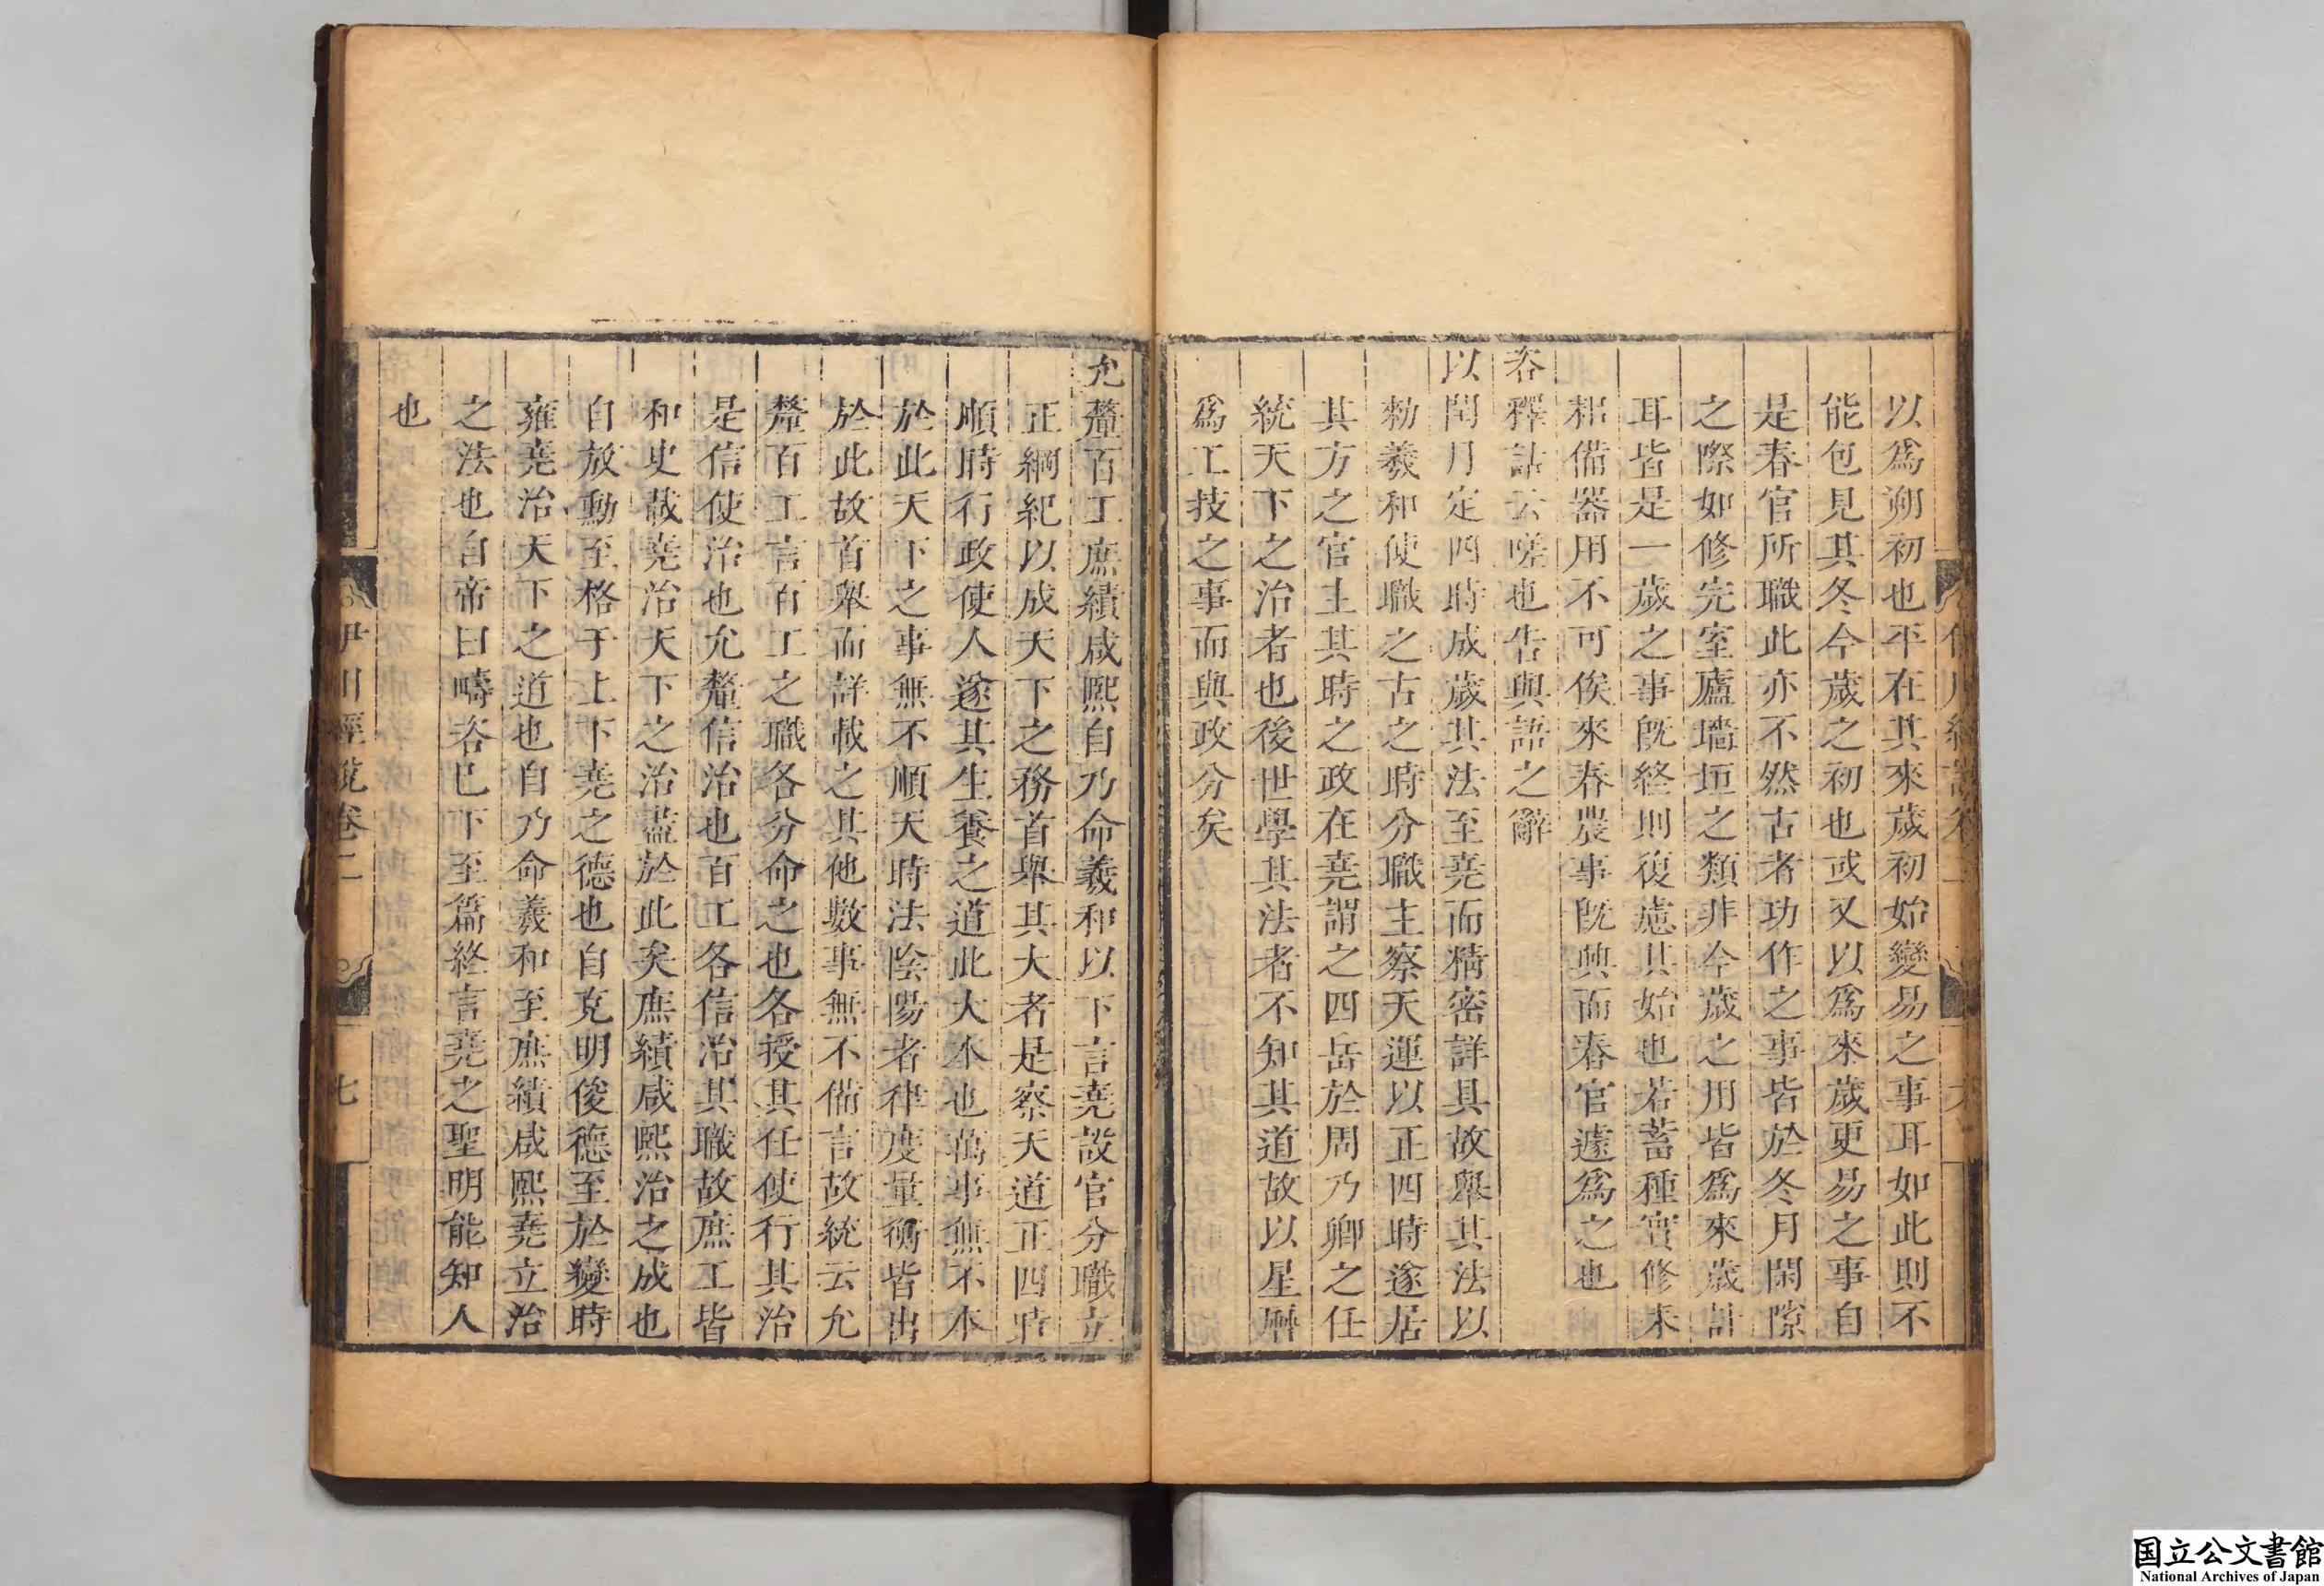 以爲朔初也平在其來歲初始變易之事耳如此則不
能包見其冬今歲之初也或又以爲來歲更易之事自
是春官所職此亦不然古者功作之事皆於冬月閑隙
之際如修完室廬墻垣之類非今歲之用皆爲來歲計
耳皆是一歲之事旣終則復慮其始也若蓄種實修耒
耜備器用不可俟來春農事旣興而春官遽爲之也
咨釋詁云嗟也告與語之辭
以閏月定四時成歲其法至堯而精密詳具故舉其法以
勑羲和使職之古之時分職主察天運以正四時遂居
其方之官主其時之政在堯謂之四岳於周乃卿之任
統天下之治者也後世學其法者不知其道故以星曆
爲工技之事而與政分矣
允釐百工庶績咸熙自乃命羲和以下言堯設官分職立
正綱紀以成天下之務首舉其大者是察天道正四時
順時行政使人遂其生養之道此大本也萬事無不本
於此天下之事無不順天時法陰陽者律度量衡皆出
於此故首舉而詳載之其他數事無不備言故統云允
釐百工言百工之職各分命之也各授其任使行其治
是信使治也允釐信治也百工各信治其職故庶工皆
和史載堯治天下之治盡於此矣庶績咸熙治之成也
自放勳至格于上下堯之德也自克明俊德至於變時
雍堯治天下之道也自乃命羲和至庶績咸熙堯立治
之法也自帝曰疇咨已下至篇終言堯之聖明能知人
也
伊川經說卷二
七
国立公文書館
National Archives of Japan